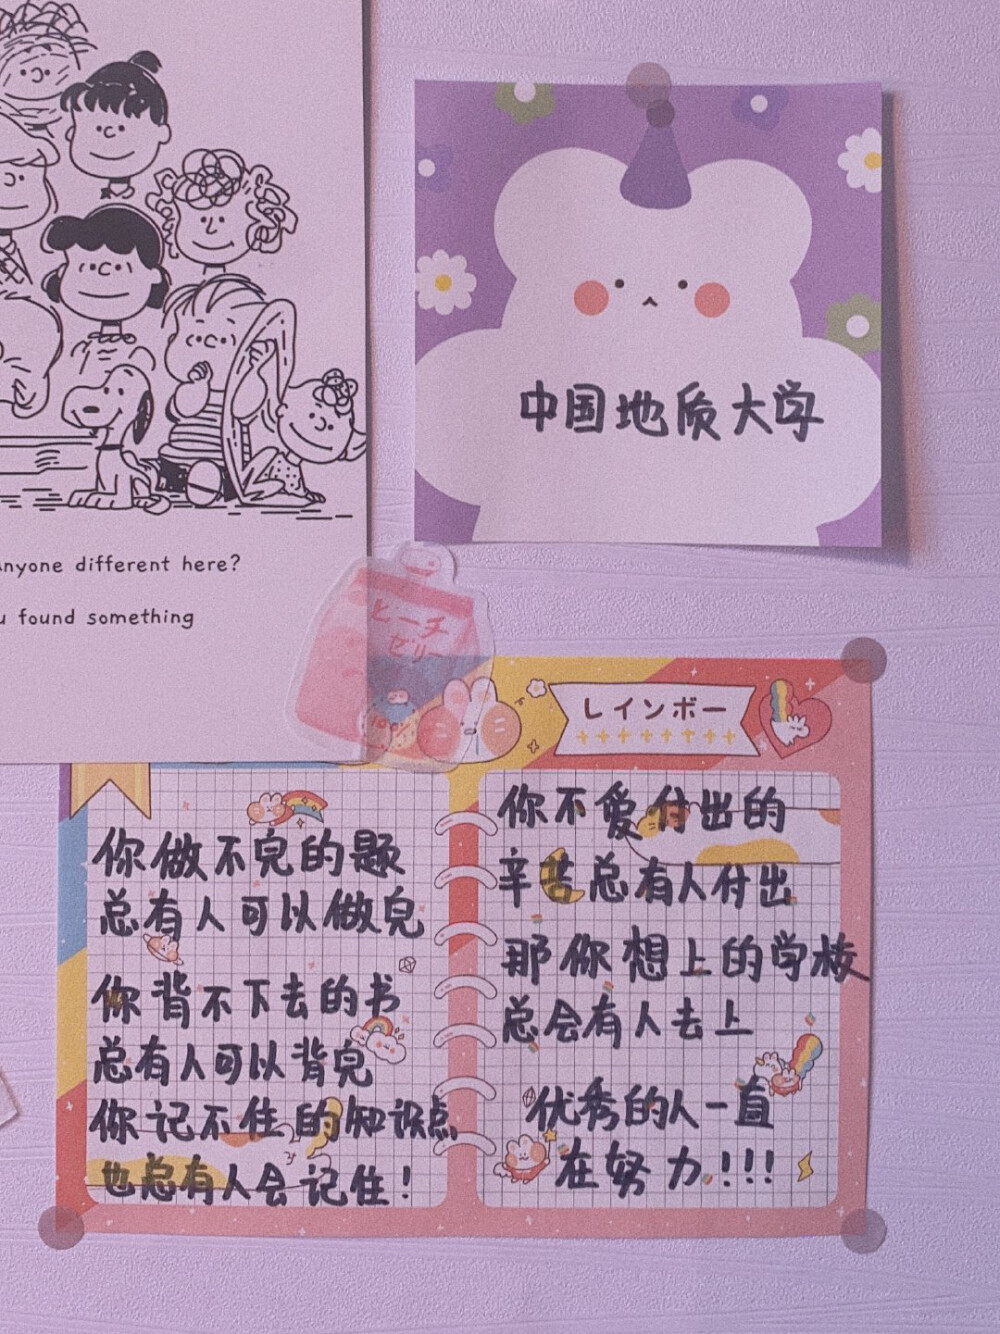 中国地质大学
nyone different here?
u found something
ピーチ
ゼリー
100%
レインボー
你做不完的题
总有人可以做完
你背不下去的书
总有人可以背完
你记不住的知识点
也总有人会记住！
你不爱付出的
辛苦总有人付出
那你想上的学校
总会有人去上
优秀的人一直
在努力!!!